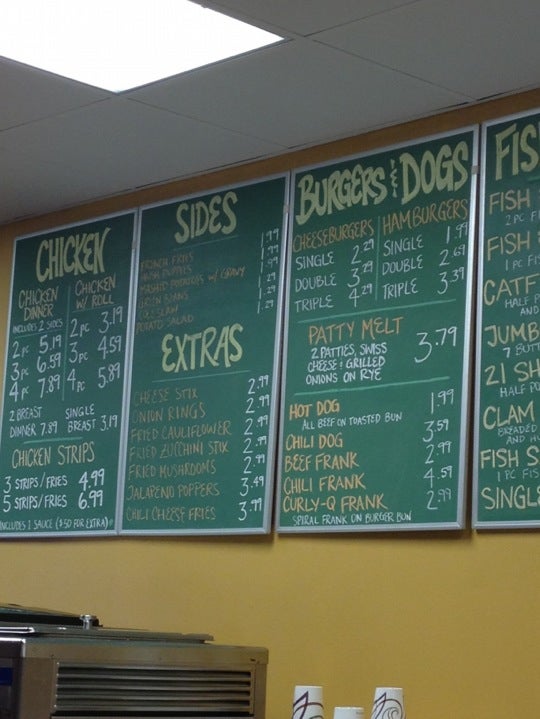 CHICKEN
CHICKEN DINNER
INCLUDES 2 SIDES
2 PC 5.19
3 PC 6.59
4 PC 7.89
CHICKEN W/ ROLL
2 PC 3.19
3 PC 4.59
4 PC 5.89
2 BREAST DINNER 7.89
SINGLE BREAST 3.19
CHICKEN STRIPS
3 STRIPS/FRIES 4.99
5 STRIPS/FRIES 6.99
INCLUDES 1 SAUCE ($.50 FOR EXTRA)
SIDES
FRENCH FRIES 1.99
HUSH PUPPIES 1.99
MASHED POTATOES W/ GRAVY 1.99
GREEN BEANS 1.29
COLESLAW 1.29
POTATO SALAD 1.29
EXTRAS
CHEESE STIX 2.99
ONION RINGS 2.99
FRIED CAULIFLOWER 2.99
FRIED ZUCCHINI STIX 2.99
FRIED MUSHROOMS 2.99
JALAPEÑO POPPERS 3.49
CHILI CHEESE FRIES 3.99
BURGERS & DOGS
CHEESEBURGERS
SINGLE 2.29
DOUBLE 3.29
TRIPLE 4.29
HAMBURGERS
SINGLE 1.99
DOUBLE 2.69
TRIPLE 3.39
PATTY MELT 3.79
2 PATTIES, SWISS
CHEESE & GRILLED
ONIONS ON RYE
HOT DOG 1.99
ALL BEEF ON TOASTED BUN
CHILI DOG 3.59
BEEF FRANK 2.99
CHILI FRANK 4.59
CURLY-Q FRANK 2.99
SPIRAL FRANK ON BURGER BUN
FIS
FISH
2 PC FI
FISH
1 PC FI
CATF
HALF P
AND
JUMB
7 BUTT
21 SH
HALF PO
CLAM
BREADED
AND H
FISH S
1 PC FIS
SINGL